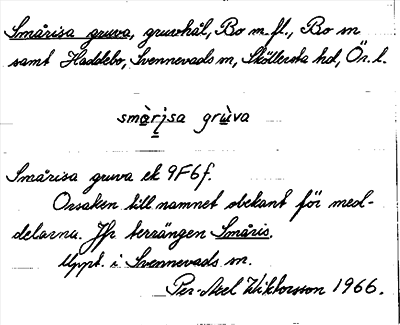 Smårisa gruva, gruvhål, Bo m.fl., Bo sn
samt Haddebo, Svennevads sn, Sköllersta hd, Ör. l.
smàrisa grùva
Smårisa gruva ek 9F6f.
Orsaken till namnet obekant för med-
delarna. Jfr terrängen Småris.
Uppt. i Svennevads sn.
Per-Axel Wiktorsson 1966.